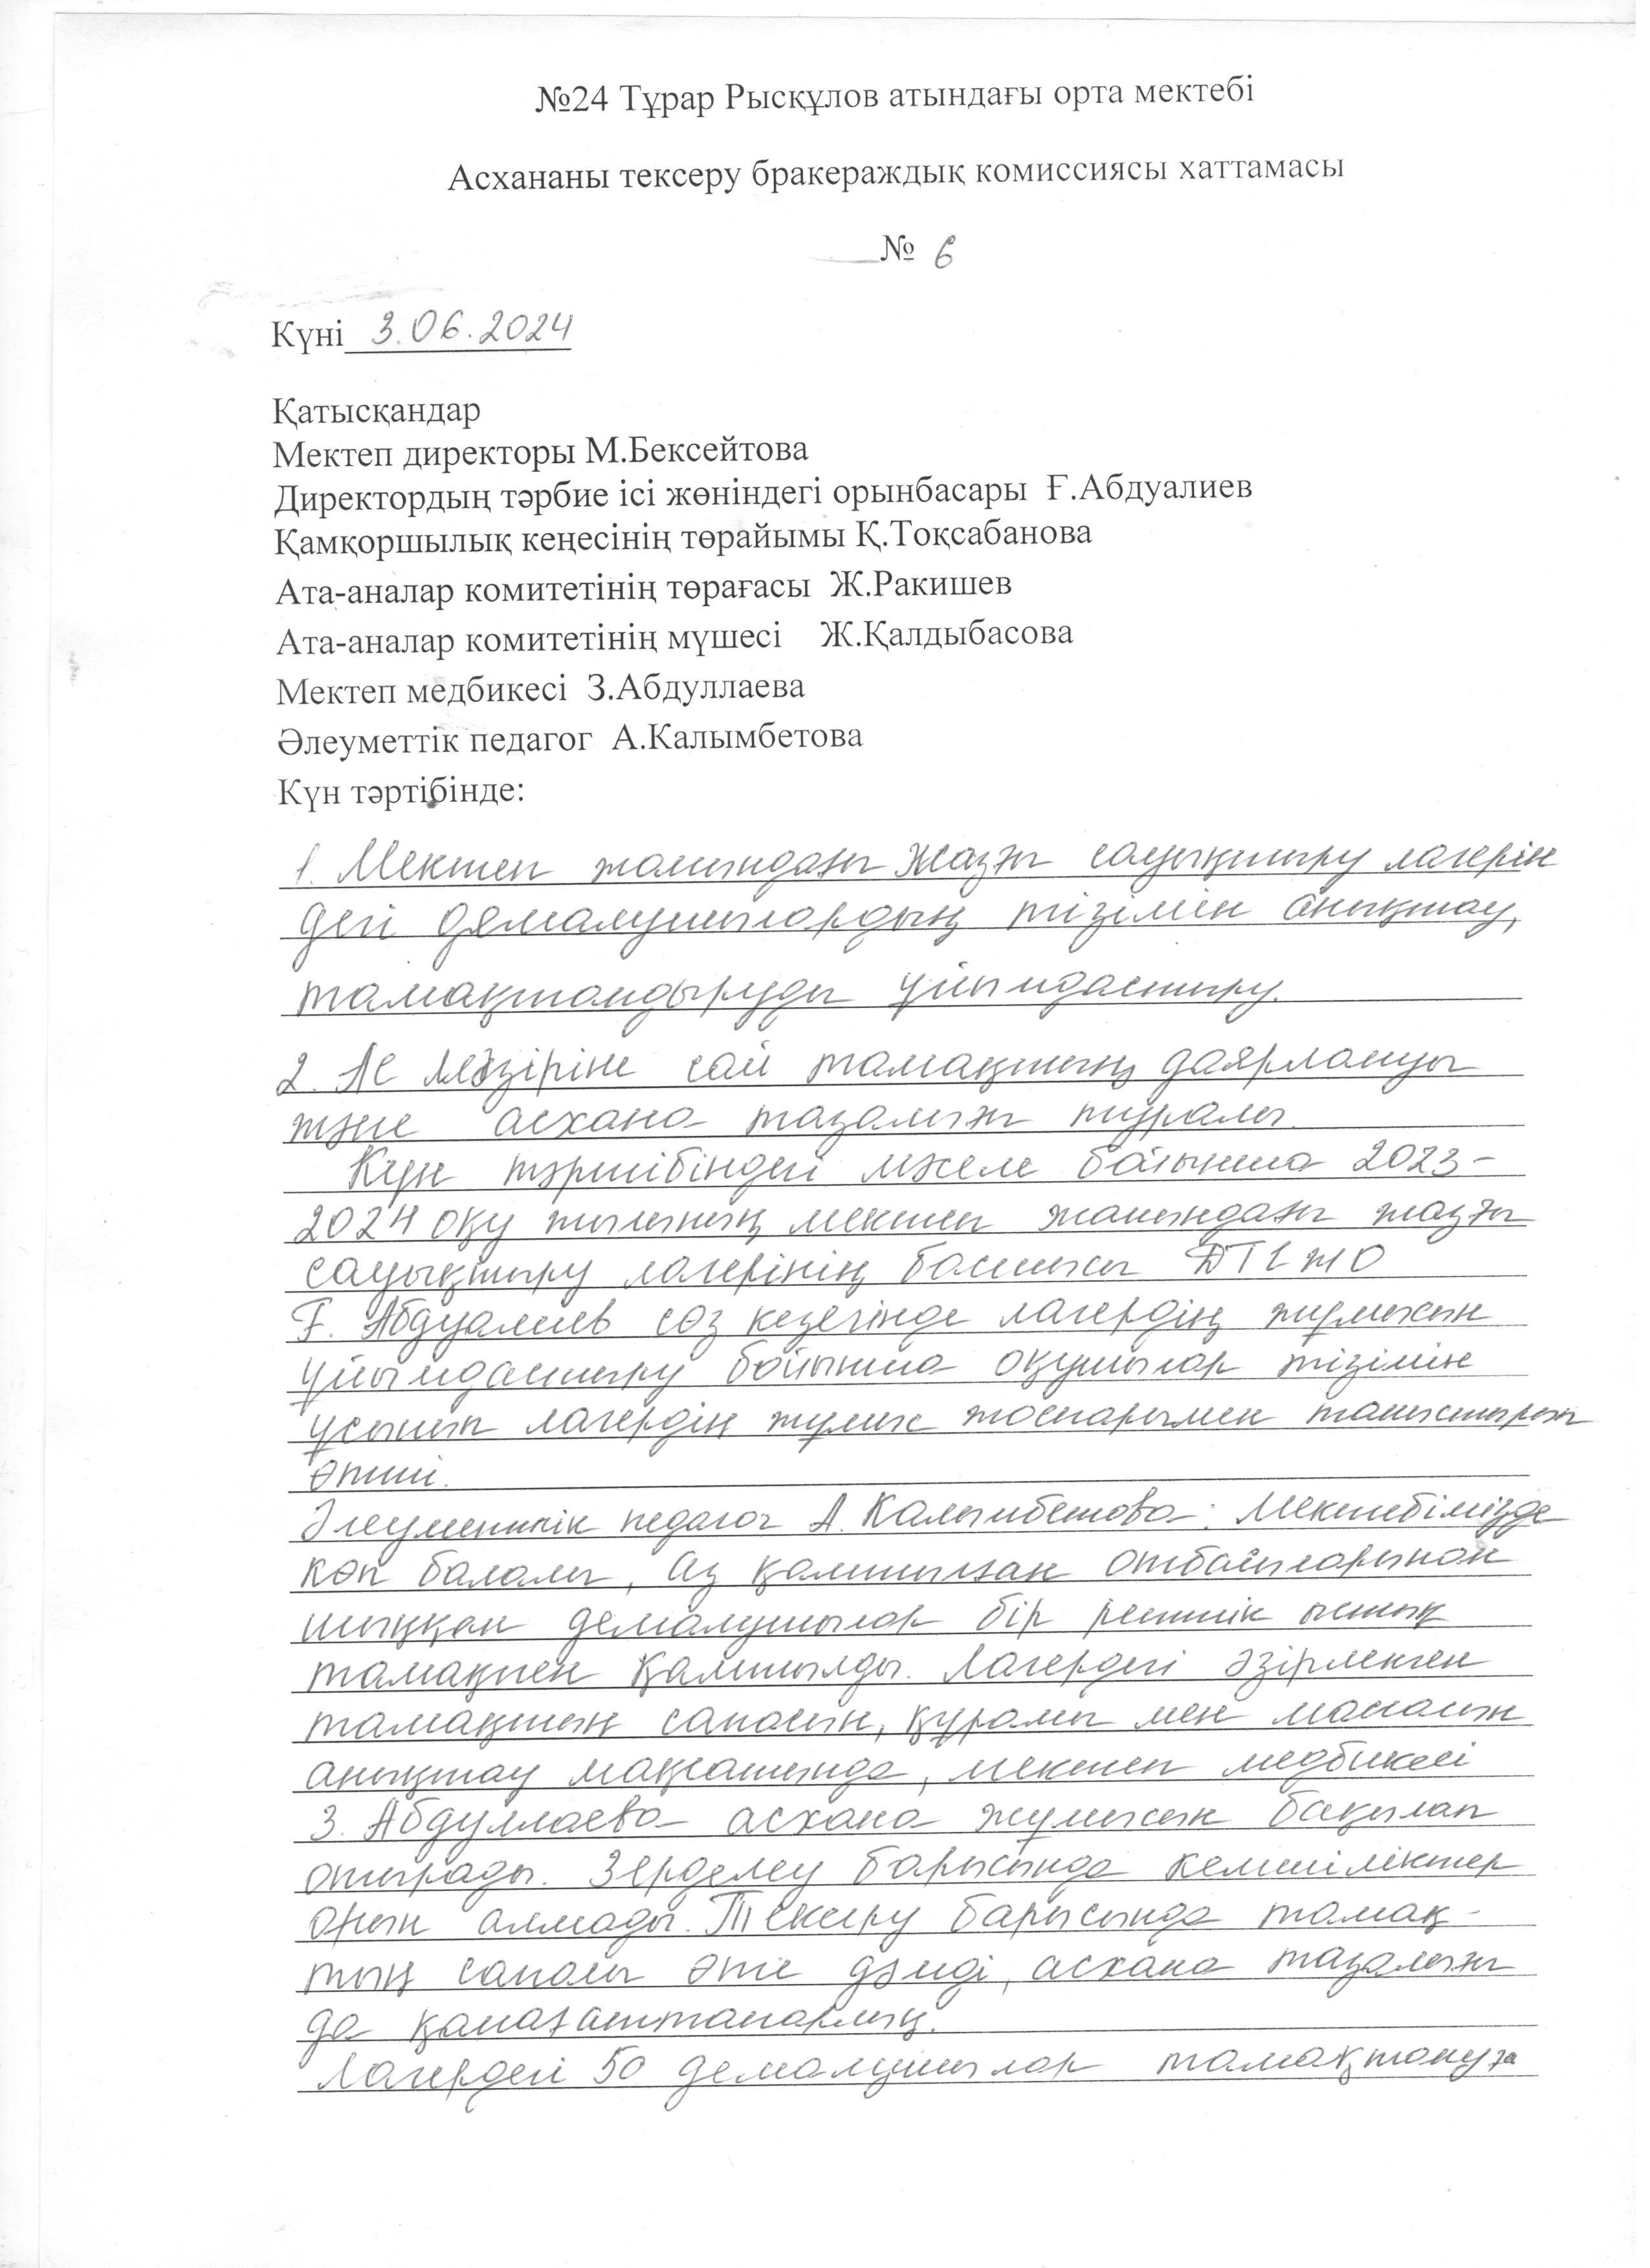 №24 Тұрар Рысқұлов атындағы орта мектебі
Асхананы тексеру бракераждық комиссиясы хаттамасы
№ 6
Күні 3.06.2024
Қатысқандар
Мектеп директоры М.Бексейтова
Директордың тәрбие ісі жөніндегі орынбасары Ғ.Абдуалиев
Қамқоршылық кеңесінің төрайымы Қ.Тоқсабанова
Ата-аналар комитетінің төрағасы Ж.Ракишев
Ата-аналар комитетінің мүшесі Ж.Қалдыбасова
Мектеп медбикесі З.Абдуллаева
Әлеуметтік педагог А.Калымбетова
Күн тәртібінде:
1. Мектеп жанындағы жазғы сауықтыру лагерін
дегі демалушылардың тізімін анықтау,
тамақтандыруды ұйымдастыру.
2. Ас мәзіріне сай тамақтың даярлануы
және асхана тазалығы туралы.
Күн тәртібіндегі мәселе бойынша 2023-
2024 оқу жылының мектеп жанындағы жазғы
сауықтыру лагерінің басшысы ДТІЖО
Ғ. Абдуалиев сөз кезегінде лагердің жұмысын
ұйымдастыру бойынша оқушылар тізімін
ұсынып лагердің жұмыс жоспарымен таныстырып
өтті.
Әлеуметтік педагог А. Калымбетова: Мектебімізде
көп балалы, аз қамтылған отбасыларынан
шыққан демалушылар бір реттік ыстық
тамақпен қамтылды. Лагердегі әзірленген
тамақтың сапасын, құрамы мен массасын
анықтау мақсатында, мектеп медбикесі
З. Абдуллаева асхана жұмысын бақылап
отырады. Зерделеу барысында кемшіліктер
орын алмады. Тексеру барысында тамақ-
тың сапалы әрі дәмді, асхана тазалығы
да қанағаттанарлық.
Лагердегі 50 демалушылар тамақтануға